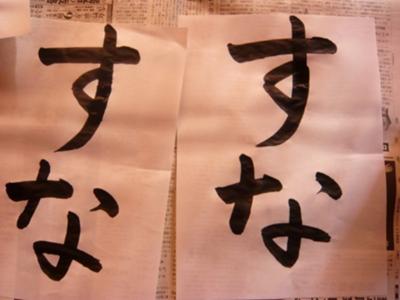 すな
すな